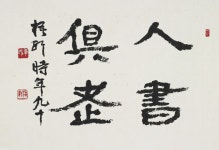 人書
俱老
時年九十